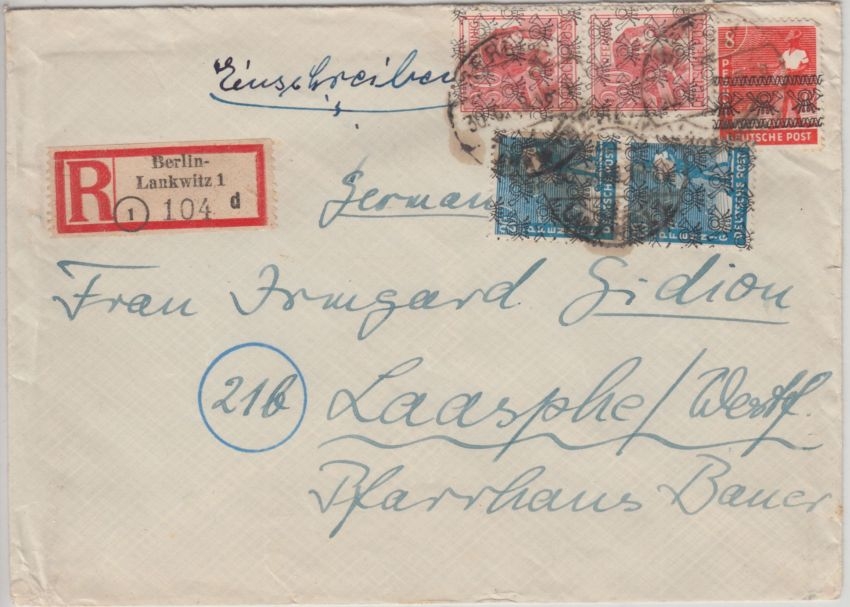 Einschreiben
8
DEUTSCHE POST
R
Berlin-
Lankwitz 1
1 104 d
DEUTSCHE POST
DEUTSCHE POST
German
Frau Irmgard Gidion
21b Laasphe/Westf.
Pfarrhaus Bauer